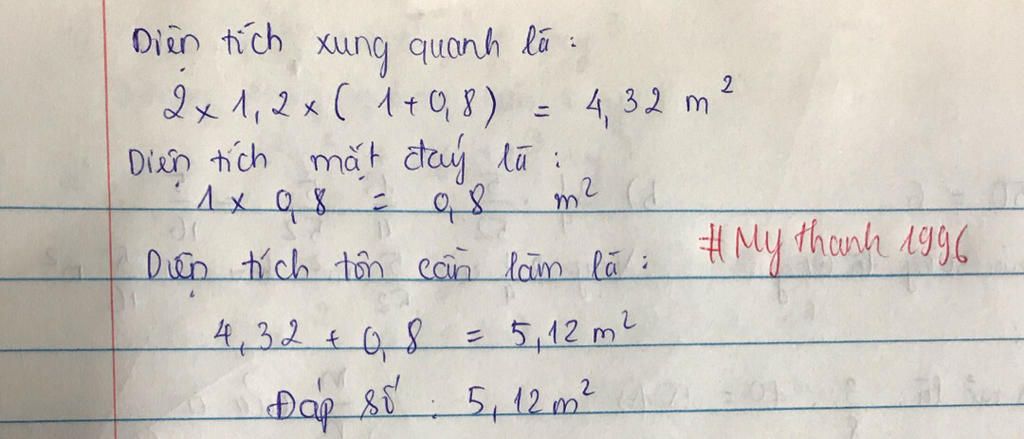 Diện tích xung quanh là :
2 x 1,2 x ( 1 + 0,8 ) = 4,32 m²
Diện tích mặt đaý là :
1 x 0,8 = 0,8 m²
Diện tích tôn cần làm là :
# My thanh 1996
4,32 + 0,8 = 5,12 m²
Đáp số : 5,12 m²